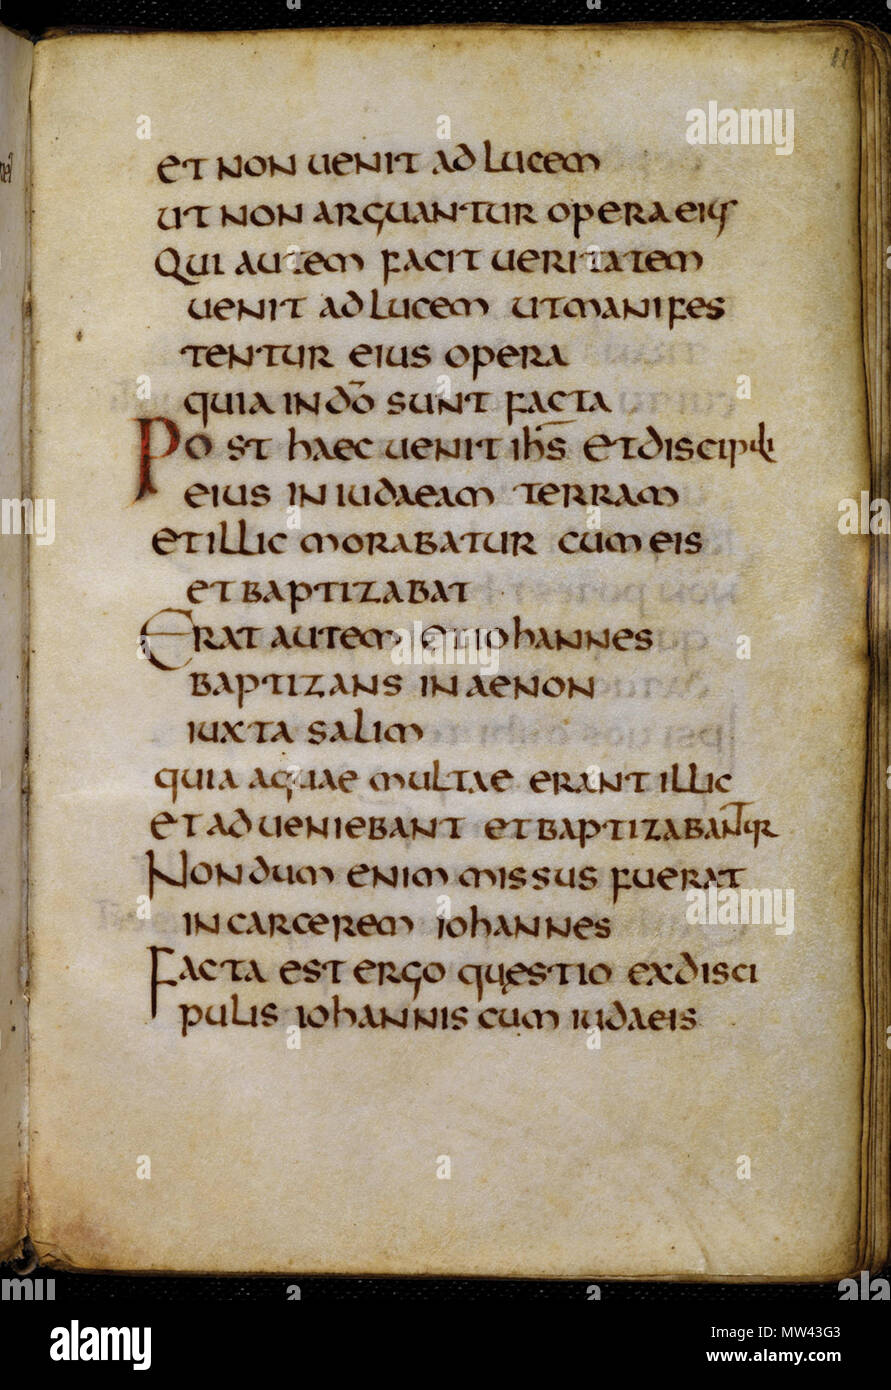 11
et non uenit ad lucem
ut non arguantur opera eius
Qui autem facit ueritatem
uenit ad lucem ut manifes
tentur eius opera
quia in dō sunt facta
Post haec uenit ihs̄ et discipuli
eius in iudaeam terram
et illic morabatur cum eis
et baptizabat
Erat autem et iohannes
baptizans in aenon
iuxta salim
quia aquae multae erant illic
et adueniebant et baptizabantur
Nondum enim missus fuerat
in carcerem iohannes
Facta est ergo quęstio ex disci
pulis iohannis cum iudaeis
alamy
alamy
alamy
alamy
alamy
Image ID: MW43G3
www.alamy.com